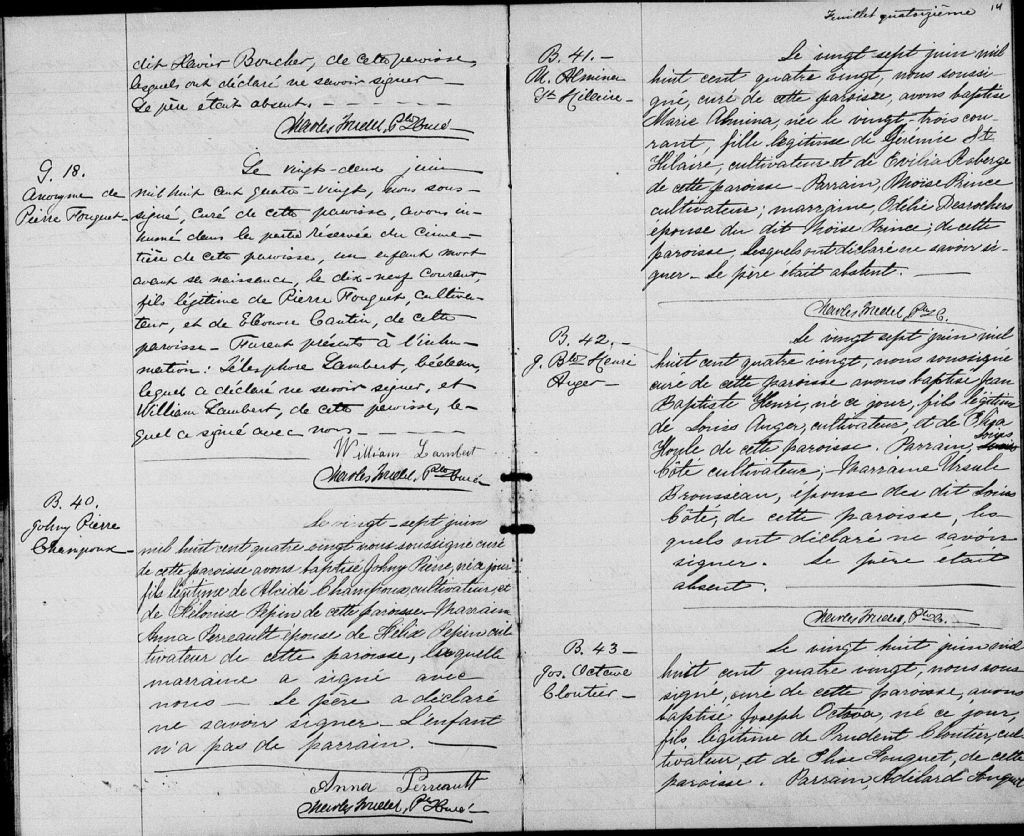 dit Xavier Boucher, de cette paroisse
lesquels ont déclaré ne savoir signer
Le père était absent. - - - - -
Charles Trudel, Ptre Curé -
G. 18.
Anonyme de
Pierre Fouquet -
Le vingt-deux juin
mil huit cent quatre-vingt, nous sous-
signé, curé de cette paroisse, avons in-
humé dans la partie réservée du cime-
tière de cette paroisse, un enfant mort
avant sa naissance, le dix-neuf courant,
fils légitime de Pierre Fouquet, cultiva-
teur, et de Eléonore Cantin, de cette
paroisse - Furent présents à l'inhu-
mation : Télesphore Lambert, bédeau,
lequel a déclaré ne savoir signer, et
William Lambert, de cette paroisse, le-
quel a signé avec nous - - - - -
William Lambert
Charles Trudel, Ptre Curé -
B. 40.
Johny Pierre
Champoux -
Le vingt-sept juin
mil huit cent quatre vingt nous soussigné curé
de cette paroisse avons baptisé Johny Pierre, né ce jour
fils légitime de Alcide Champoux, cultivateur, et
de Philonise Pepin de cette paroisse - Marraine
Anna Perreault épouse de Félix Pepin cul
tivateur de cette paroisse, laquelle
marraine a signé avec
nous - Le père a déclaré
ne savoir signer - L'enfant
n'a pas de parrain. -
Anna Perreault
Charles Trudel, Ptre Curé -
Feuillet quatorzième 14
B. 41. -
M. Almina
St Hilaire -
Le vingt sept juin mil
huit cent quatre vingt, nous soussi-
gné, curé de cette paroisse, avons baptisé
Marie Almina, née le vingt-trois cou-
rant, fille légitime de Jérémie St
Hilaire, cultivateur et de Evilia Roberge
de cette paroisse - Parrain, Moïse Prince
cultivateur ; marraine, Odélie Desrochers
épouse du dit Moïse Prince ; de cette
paroisse, lesquels ont déclaré ne savoir si-
gner - Le père était absent. -
Charles Trudel, Ptre C.
B. 42. -
J. Bte Henri
Auger -
Le vingt sept juin mil
huit cent quatre vingt, nous soussigné
curé de cette paroisse avons baptisé Jean
Baptiste Henri, né ce jour, fils légitime
de Louis Auger, cultivateur, et de Elisa
Houle de cette paroisse. Parrain, Louis
Côté cultivateur ; Marraine Ursule
Brousseau, épouse du dit Louis
Côté, de cette paroisse, les
quels ont déclaré ne savoir
signer. Le père était
absent.
Charles Trudel, Ptre C.
B. 43 -
Jos. Octave
Cloutier -
Le vingt huit juin mil
huit cent quatre vingt, nous sous
signé, curé de cette paroisse, avons
baptisé Joseph Octave, né ce jour,
fils légitime de Prudent Cloutier, cul
tivateur, et de Elise Fouquet, de cette
paroisse. Parrain, Adélard Fouquet